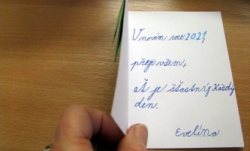 V novém roce 2021
přeji všem,
ať je šťastný každý
den.
Evelína